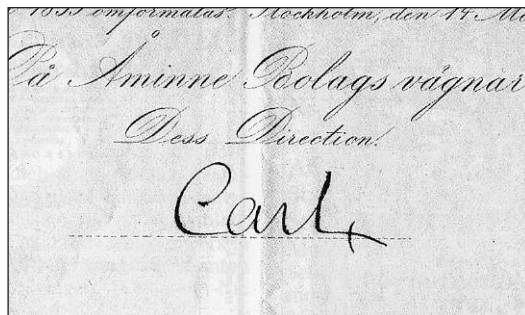 1855 omformatas. Stockholm, den 14 Ma
På Åminne Bolags vägnar
Dess Direction.
Carl